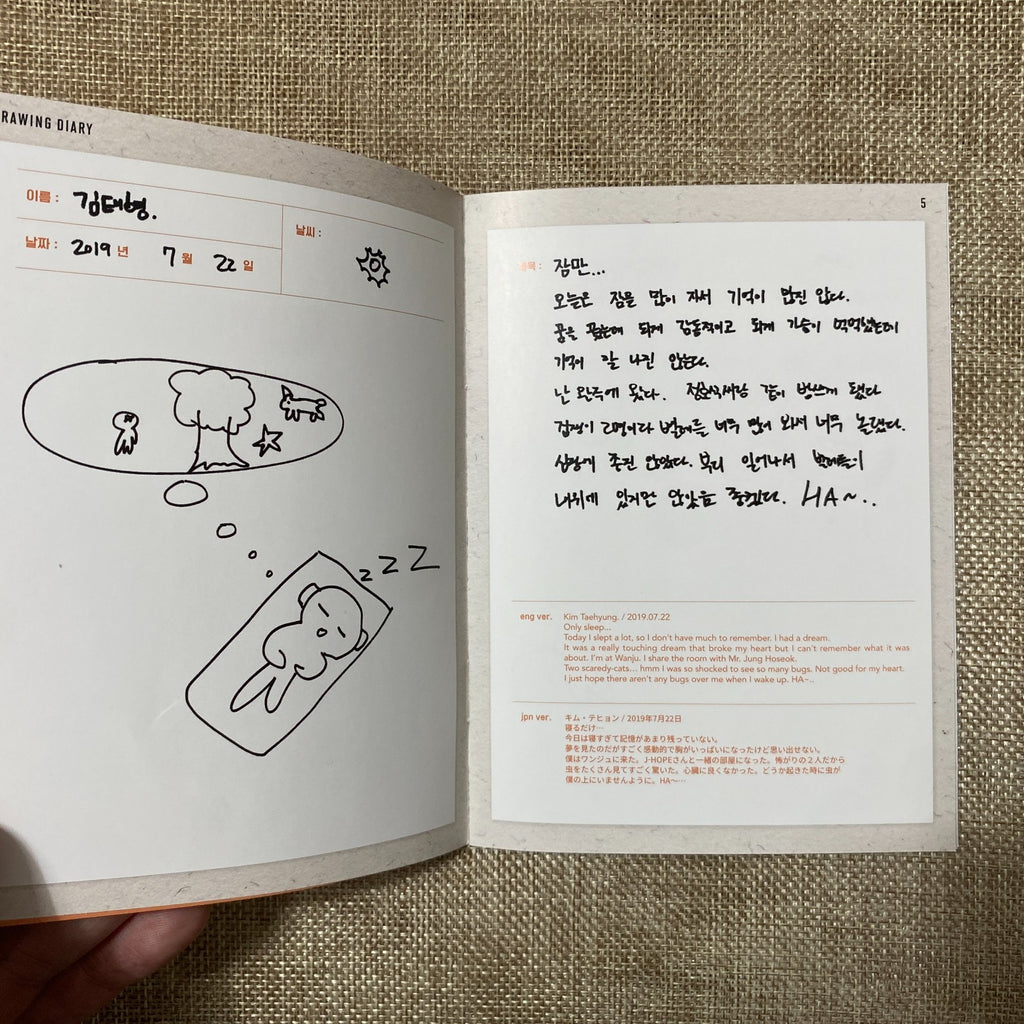 RAWING DIARY
이름 : 김태형.
날짜 : 2019 년 7 월 22 일
날씨 :
5
잠만...
오늘은 잠을 많이 자서 기억이 많진 않다.
꿈을 꿨는데 되게 감동적이고 되게 가슴이 먹먹했는데
기억이 잘 나진 않는다.
난 완주에 왔다. 정호석씨랑 같이 방쓰게 됐다
겁쟁이 2명이다 벌레를 너무 많이 봐서 너무 놀랬다.
심장에 좋진 않았다. 부디 일어나서 벌레들이
내위에 있지만 않았음 좋겠다. HA~..
eng ver. Kim Taehyung. / 2019.07.22
Only sleep...
Today I slept a lot, so I don't have much to remember. I had a dream.
It was a really touching dream that broke my heart but I can't remember what it was
about. I'm at Wanju. I share the room with Mr. Jung Hoseok.
Two scaredy-cats... hmm I was so shocked to see so many bugs. Not good for my heart.
I just hope there aren't any bugs over me when I wake up. HA~..
jpn ver. キム・テヒョン / 2019年7月22日
寝るだけ…
今日は寝すぎて記憶があまり残っていない。
夢を見たのだがすごく感動的で胸がいっぱいになったけど思い出せない。
僕はワンジュに来た。J-HOPEさんと一緒の部屋になった。怖がりの2人だから
虫をたくさん見てすごく驚いた。心臓に良くなかった。どうか起きた時に虫が
僕の上にいませんように。HA〜…
zZZ